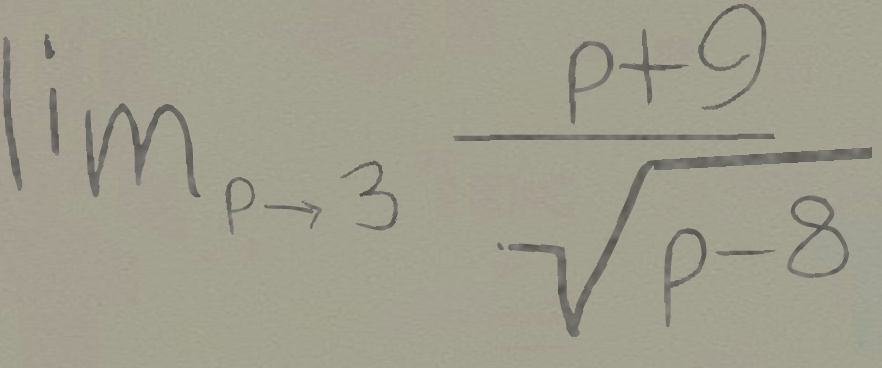 \lim_{p \to 3} \frac{p+9}{\sqrt{p-8}}